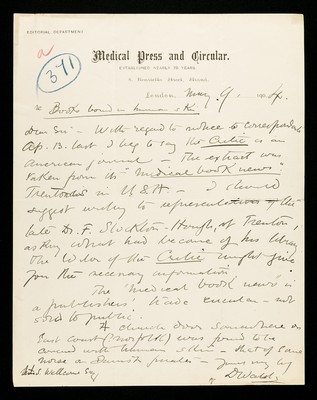 EDITORIAL DEPARTMENT.
a
371
Medical Press and Circular.
ESTABLISHED NEARLY 70 YEARS.
8, Henrietta Street, Strand,
London, May 9. 1904.
re Books bound in human skin
Dear Sir - With regard to notice to correspondents
Ap. 13. last I beg to say the Critic is an
American journal - The extract was
taken from the "Medical book news"
Trent in USA - I should
suggest writing to representatives of the
late Dr. F. Stockton-Hough, at Trenton,
asking what had become of his library
The Editor of the Critic might give
you the necessary information
The "Medical book news" is
a publishers' trade circular - not
sold to public.
A church door somewhere on
East coast (? Norfolk) was found to be
covered with human skin - that of some
Danish pirates - Yours truly
S. Wellcome Esq